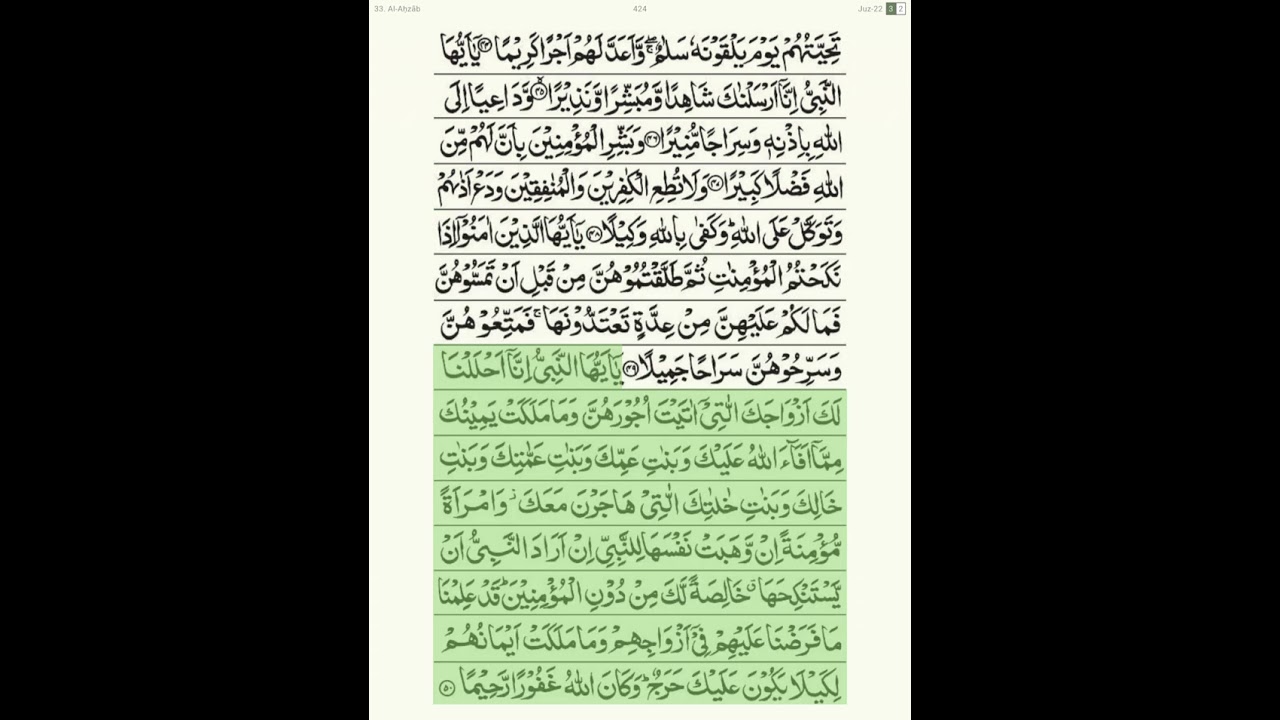 33. Al-Aḥzāb 424 Juz-22 3 2
تَحِيَّتُهُمْ يَوْمَ يَلْقَوْنَهٗ سَلٰمٌ ۖۚ وَّاَعَدَّ لَهُمْ اَجْرًا كَرِيْمًا ﴿۴۴﴾ يٰۤاَيُّهَا
النَّبِيُّ اِنَّاۤ اَرْسَلْنٰكَ شَاهِدًا وَّمُبَشِّرًا وَّنَذِيْرًا ﴿۴۵﴾ۙ وَّدَاعِيًا اِلَى
اللّٰهِ بِاِذْنِهٖ وَسِرَاجًا مُّنِيْرًا ﴿۴۶﴾ وَبَشِّرِ الْمُؤْمِنِيْنَ بِاَنَّ لَهُمْ مِّنَ
اللّٰهِ فَضْلًا كَبِيْرًا ﴿۴۷﴾ وَلَا تُطِعِ الْكٰفِرِيْنَ وَالْمُنٰفِقِيْنَ وَدَعْ اَذٰىهُمْ
وَتَوَكَّلْ عَلَى اللّٰهِ ؕ وَكَفٰى بِاللّٰهِ وَكِيْلًا ﴿۴۸﴾ يٰۤاَيُّهَا الَّذِيْنَ اٰمَنُوْۤا اِذَا
نَكَحْتُمُ الْمُؤْمِنٰتِ ثُمَّ طَلَّقْتُمُوْهُنَّ مِنْ قَبْلِ اَنْ تَمَسُّوْهُنَّ
فَمَا لَكُمْ عَلَيْهِنَّ مِنْ عِدَّةٍ تَعْتَدُّوْنَهَا ۚ فَمَتِّعُوْهُنَّ
وَسَرِّحُوْهُنَّ سَرَاحًا جَمِيْلًا ﴿۴۹﴾ يٰۤاَيُّهَا النَّبِيُّ اِنَّاۤ اَحْلَلْنَا
لَكَ اَزْوَاجَكَ الّٰتِيْۤ اٰتَيْتَ اُجُوْرَهُنَّ وَمَا مَلَكَتْ يَمِيْنُكَ
مِمَّاۤ اَفَآءَ اللّٰهُ عَلَيْكَ وَبَنٰتِ عَمِّكَ وَبَنٰتِ عَمّٰتِكَ وَبَنٰتِ
خَالِكَ وَبَنٰتِ خٰلٰتِكَ الّٰتِيْ هَاجَرْنَ مَعَكَ ؗ وَامْرَاَةً
مُّؤْمِنَةً اِنْ وَّهَبَتْ نَفْسَهَا لِلنَّبِيِّ اِنْ اَرَادَ النَّبِيُّ اَنْ
يَّسْتَنْكِحَهَا ۗ خَالِصَةً لَّكَ مِنْ دُوْنِ الْمُؤْمِنِيْنَ ؕ قَدْ عَلِمْنَا
مَا فَرَضْنَا عَلَيْهِمْ فِيْۤ اَزْوَاجِهِمْ وَمَا مَلَكَتْ اَيْمَانُهُمْ
لِكَيْلَا يَكُوْنَ عَلَيْكَ حَرَجٌ ؕ وَكَانَ اللّٰهُ غَفُوْرًا رَّحِيْمًا ﴿۵۰﴾